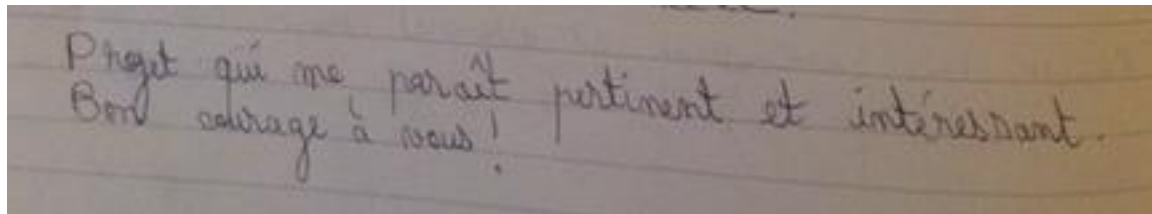 Projet qui me paraît pertinent et intéressant.
Bon courage à vous !